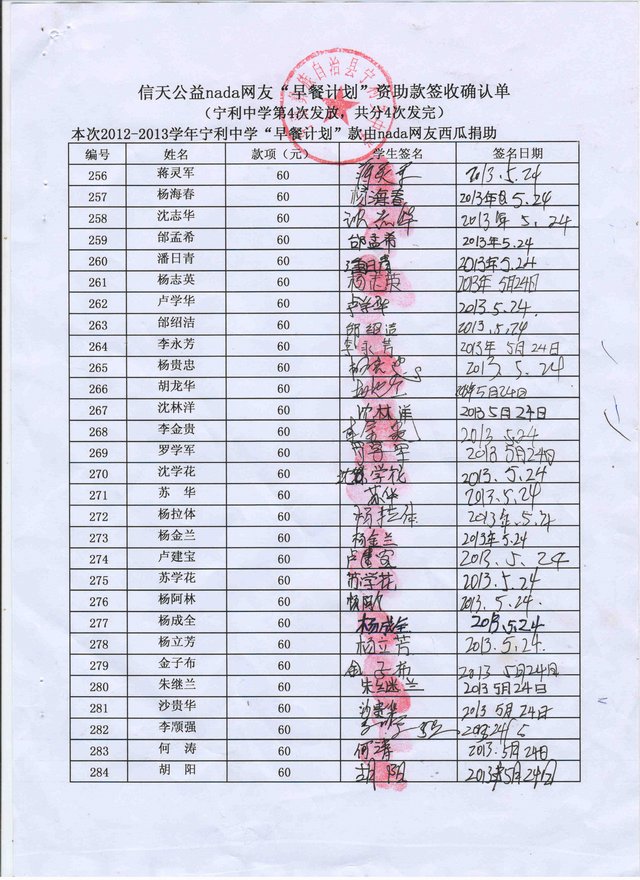 信天公益nada网友“早餐计划”资助款签收确认单
（宁利中学第4次发放，共分4次发完）
本次2012-2013学年宁利中学“早餐计划”款由nada网友西瓜捐助
编号 姓名 款项（元） 学生签名 签名日期
256 蒋灵军 60 蒋灵军 2013.5.24
257 杨海春 60 杨海春 2013年5.24
258 沈志华 60 沈志华 2013年5.24
259 邰孟希 60 邰孟希 2013年5.24
260 潘日青 60 潘日青 2013年5.24
261 杨志英 60 杨志英 2013年5月24日
262 卢学华 60 卢学华 2013.5.24.
263 邰绍洁 60 邰绍洁 2013.5.24
264 李永芳 60 李永芳 2013年5月24日
265 杨贵忠 60 2013.5.24
266 胡龙华 60 2013年5月24日
267 沈林洋 60 沈林洋 2013 5月24日
268 李金贵 60 李金贵 2013.5.24
269 罗学军 60 2013 5月24日
270 沈学花 60 沈学花 2013.5.24
271 苏 华 60 苏华 2013.5.24
272 杨拉体 60 杨拉体 2013年.5.24
273 杨金兰 60 杨金兰 2013年5.24
274 卢建宝 60 卢建宝 2013.5.24
275 苏学花 60 苏学花 2013.5.24
276 杨阿林 60 2013.5.24.
277 杨成全 60 杨成全 2013.5.24
278 杨立芳 60 杨立芳 2013.5.24
279 金子布 60 金子布 2013 5月24日
280 朱继兰 60 朱继兰 2013 5月24日
281 沙贵华 60 沙贵华 2013 5月24日
282 李顺强 60
283 何 涛 60 何涛 2013.5月24日
284 胡 阳 60 胡阳 2013年5月24日